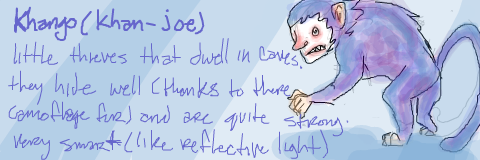 Khanjo (khan-joe)
little thieves that dwell in caves.
they hide well (thanks to there
camoflage fur) and are quite strong.
very smart (like reflective light)